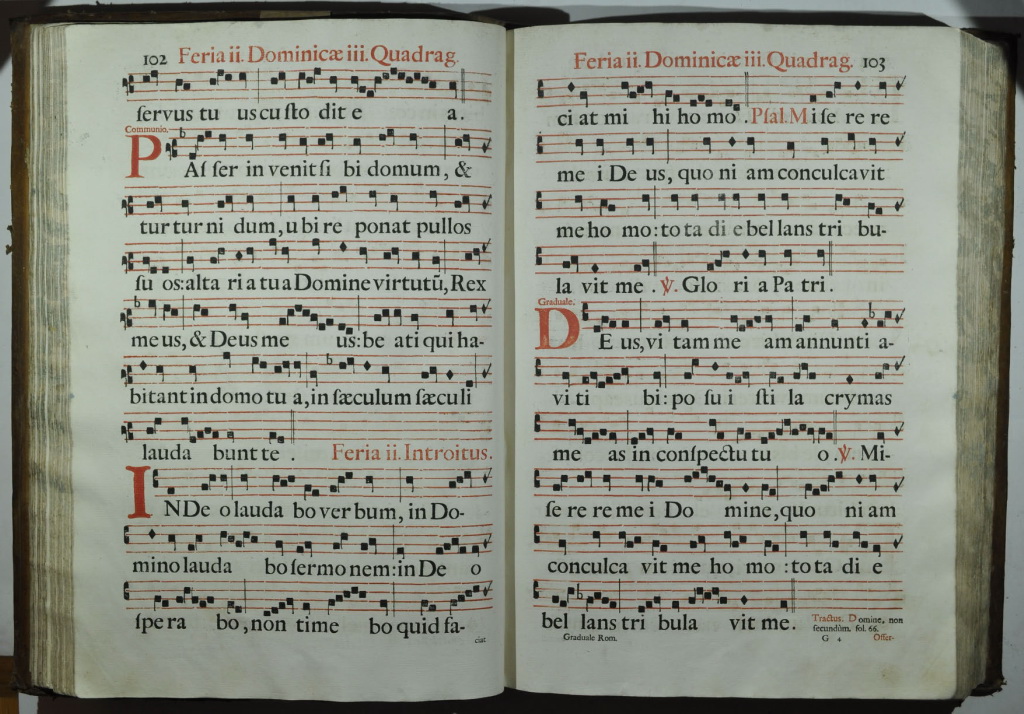 102 Feria ii. Dominicæ iii. Quadrag.
ſervus tu us cu ſto dit e a.
Communio.
PAſ ſer in venit ſi bi domum, &
tur tur ni dum, u bi re ponat pullos
ſu os: alta ri a tu a Domine virtutũ, Rex
me us, & Deus me us: be ati qui ha-
bitant in domo tu a, in ſæculum ſæcu li
lauda bunt te . Feria ii. Introitus.
INDe o lauda bo ver bum, in Do-
mino lauda bo ſermo nem: in De o
ſpe ra bo, non time bo quid fa-
ciat
Feria ii. Dominicæ iii. Quadrag. 103
ci at mi hi ho mo . Pſal. Mi ſe re re
me i De us, quo ni am conculcavit
me ho mo: to ta di e bel lans tri bu-
la vit me . ℣. Glo ri a Pa tri.
Graduale.
DE us, vi tam me am annunti a-
vi ti bi: po ſu i ſti la crymas
me as in conſpectu tu o. ℣. Mi-
ſe re re me i Do mine, quo ni am
conculca vit me ho mo : to ta di e
bel lans tri bula vit me.
Tractus. Domine, non
ſecundùm. fol. 66.
Graduale Rom. G 4 Offer-